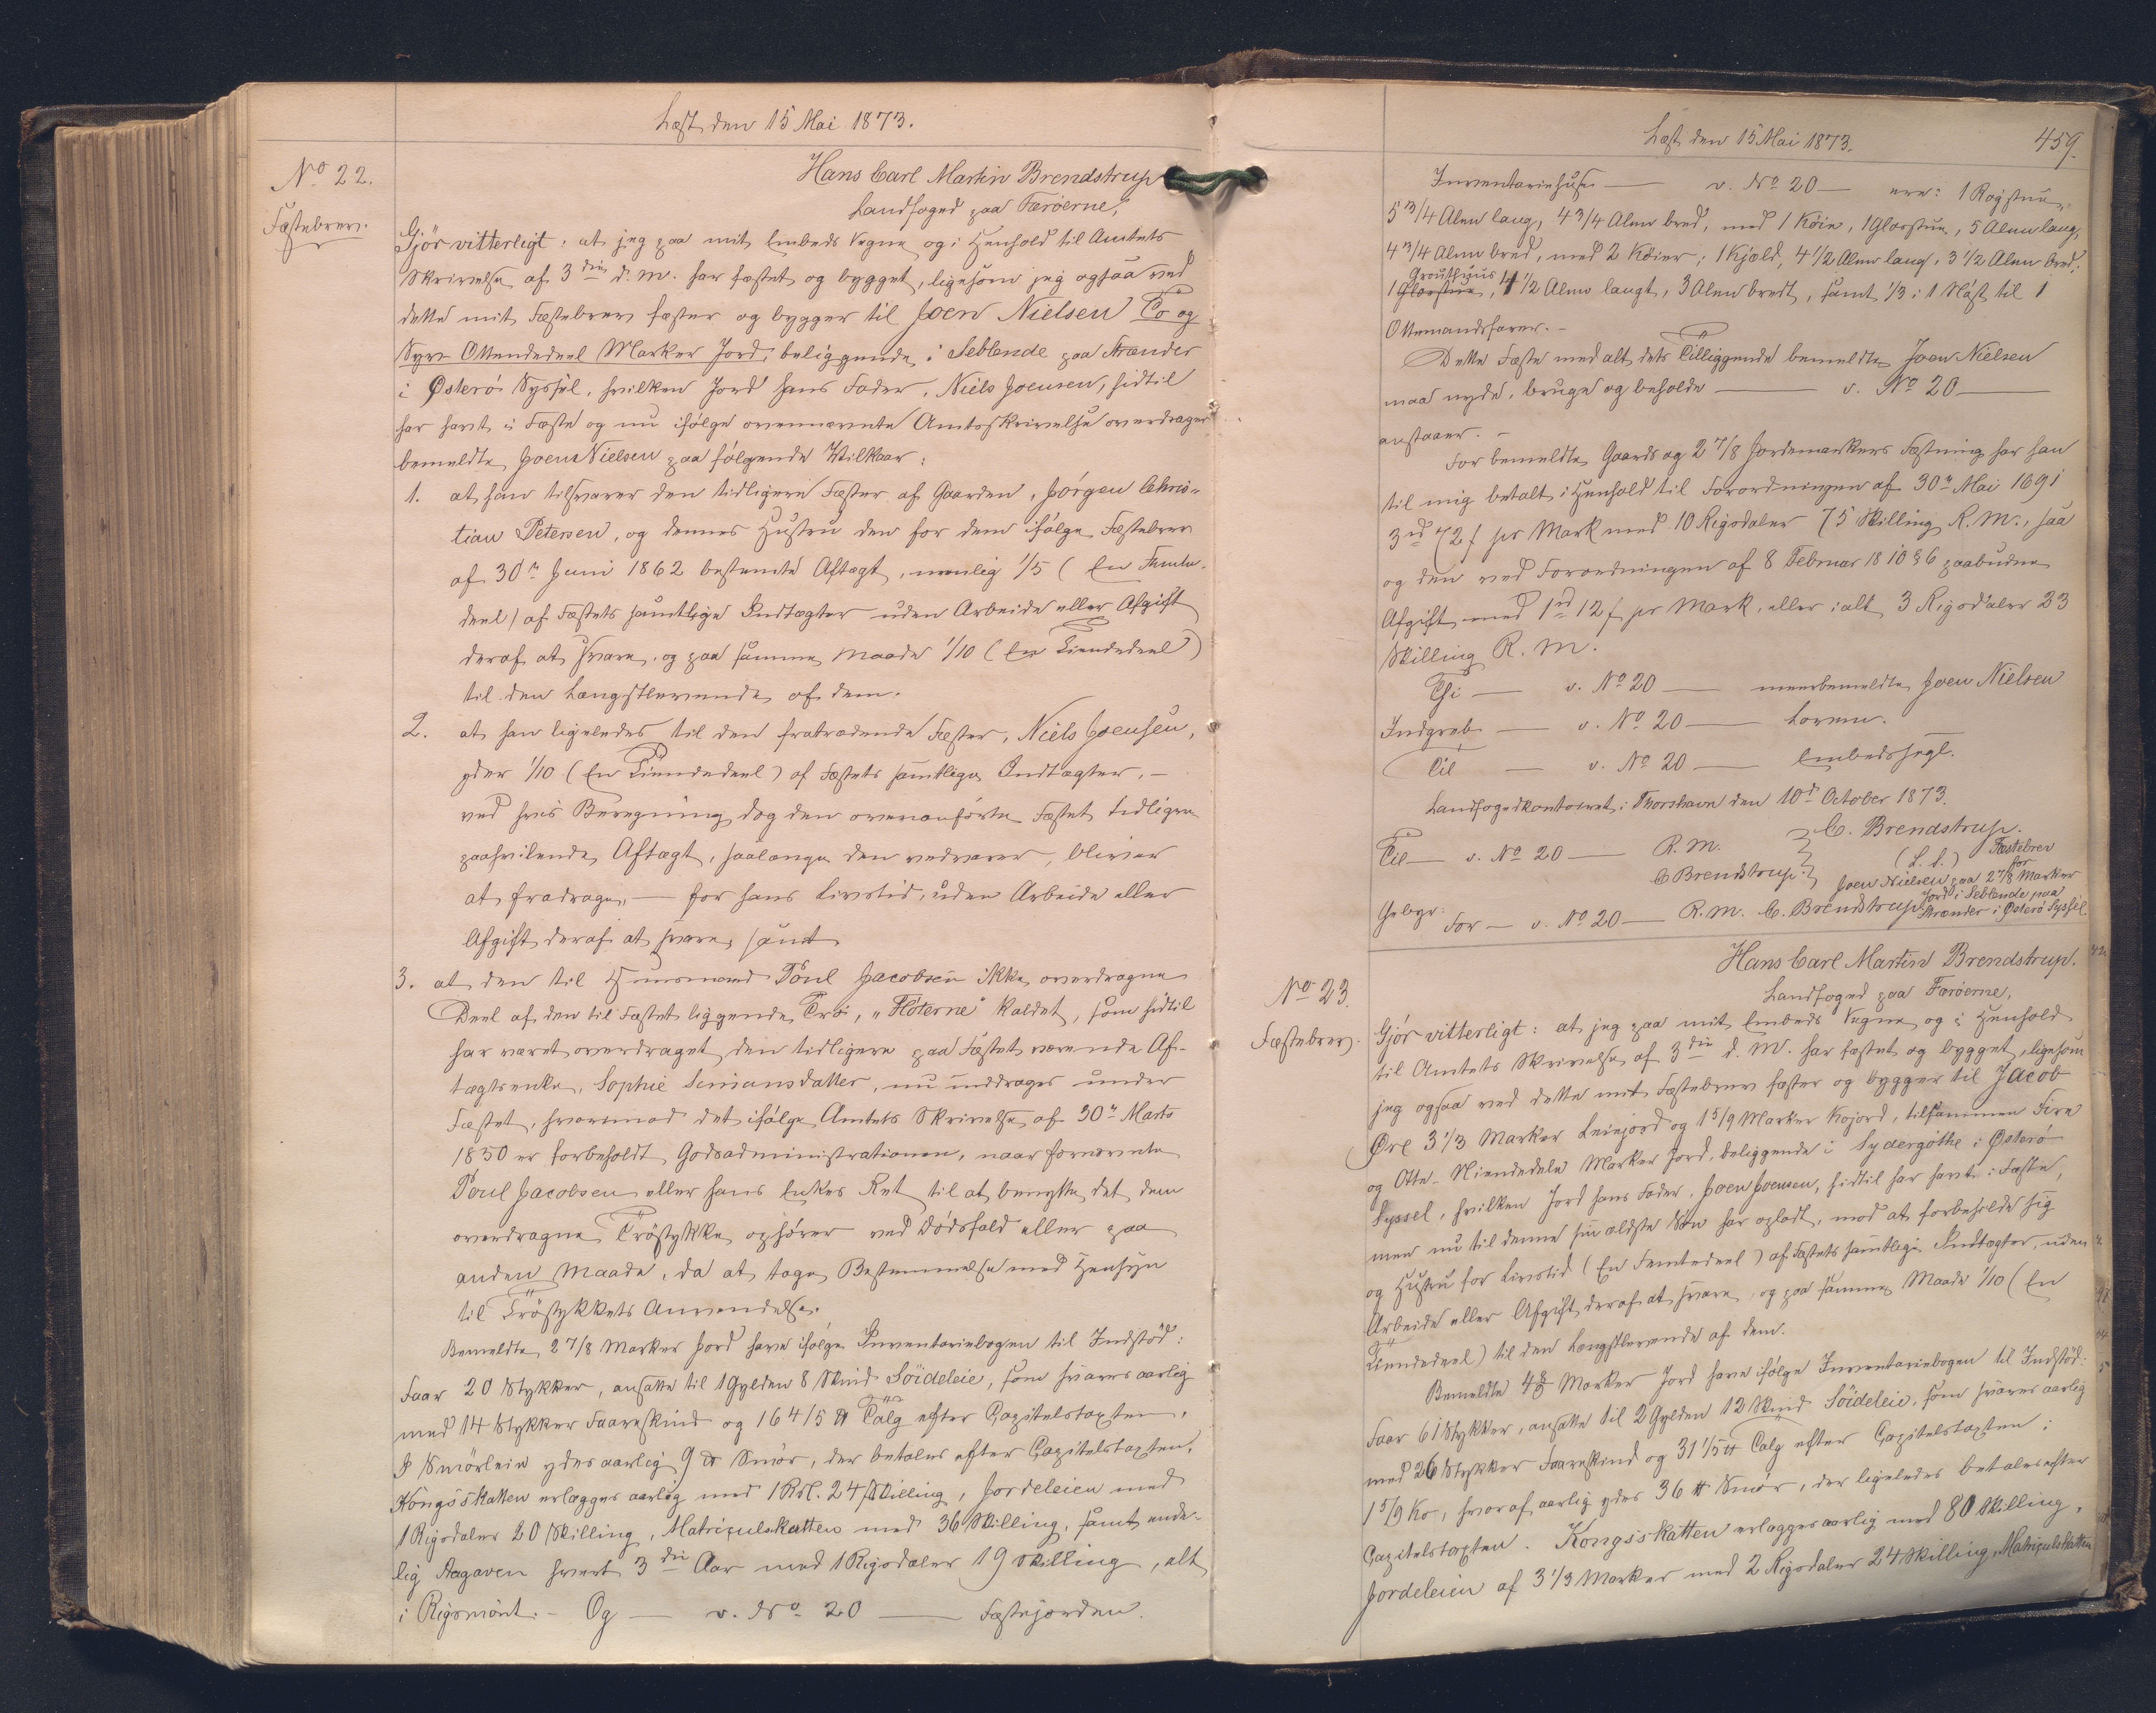 Læst den 15 Mai 1873.
No 22.
Fæstebrev.
Hans Carl Martin Brendstrup
Landfoged paa Færöerne,
Gjör vitterligt: at jeg paa mit Embeds Vegne og i Henhold til Amtets
Skrivelse af 3die d. M. har fæstet og bygget, ligesom jeg ogsaa ved
dette mit Fæstebrev fæster og bygger til Joen Nielsen To og
Syv Ottendedeel Marker Jord, beliggende i Selletræde paa Strænder
i Österö Syssel, hvilken Jord hans Fader, Niels Joensen, hidtil
har havt i Fæste og nu ifölge ovennævnte Amtsskrivelse overdrages
bemeldte Joen Nielsen paa fölgende Vilkaar:
1. at han tilsvarer den tidligere Fæster af Gaarden, Jörgen Chris-
tian Petersen, og dennes Hustru den for dem ifölge Fæstebrev
af 30te Juni 1862 bestemte Aftægt, nemlig 1/5 (En Femte-
deel) af Fæstets samtlige Indtægter uden Arbeide eller Afgift
deraf at svare, og paa samme Maade 1/10 (En Tiendedeel)
til den Længstlevende af dem.
2. at han ligeledes til den fratrædende Fæster, Niels Joensen,
yder 1/10 (En Tiendedeel) af Fæstets samtlige Indtægter, -
ved hvis Beregning dog den ovenanförte Fæstet tidligere
paahvilende Aftægt, saalænge den vedvarer, bliver
at fradrage, - for hans Livstid, uden Arbeide eller
Afgift deraf at svare, samt
3. at den til Huusmand Poul Jacobsen ikke overdragne
Deel af den til Fæstet liggende Trö, "Flöterne" kaldet, som hidtil
har været overdraget den tidligere paa Fæstet værende Af-
tægtsenke, Sophie Simonsdatter, nu inddrages under
Fæstet, hvorimod det ifölge Amtets Skrivelse af 30te Marts
1850 er forbeholdt Godsadministrationen, naar fornævnte
Poul Jacobsen eller hans Enkes Ret til at benytte det dem
overdragne Tröstykke ophörer ved Dödsfald eller paa
anden Maade, da at tage Bestemmelse med Hensyn
til Tröstykkets Anvendelse.
Bemeldte 2 7/8 Marker Jord have ifölge Inventariebogen til Indstöd:
Faar 20 Stykker, ansatte til 1 Gylden 8 Skind Söideleie, som svares aarlig
med 14 Stykker Faareskind og 16 4/5 ℔ Talg efter Capitelstaxten.
I Smörleie ydes aarlig 9 ℔ Smör, der betales efter Capitelstaxten.
Kongsskatten erlægges aarlig med 1 Rdl. 24 Skilling, Jordeleien med
1 Rigsdaler 20 Skilling, Matriculskatten med 36 Skilling, samt ende-
lig Aagaven hvert 3die Aar med 1 Rigsdaler 19 Skilling, alt
i Rigsmönt. - Og — v. No 20 — Fæstejorden.
Læst den 15 Mai 1873.
459.
Inventariehuse — v. No 20 — ere: 1 Rogstue,
5 3/4 Alen lang, 4 3/4 Alen bred, med 1 Köie, 1 Glarstue, 5 Alen lang,
4 3/4 Alen bred, med 2 Köier; 1 Kjæld, 4 1/2 Alen lang, 3 1/2 Alen bred;
Grouthuus
1 Glarstue, 4 1/2 Alen langt, 3 Alen bredt, samt 1/3 i 1 Nöst til 1
Ottemandsfarer. -
Dette Fæste med alt dets Tilliggende bemeldte Joen Nielsen
maa nyde, bruge og beholde — v. No 20 —
anstaaer. -
For bemeldte Gaards og 2 7/8 Jordemarkers Fæstning har han
til mig betalt i Henhold til Forordningen af 30te Mai 1691
3rd 72 ſ pr Mark med 10 Rigsdaler 75 Skilling R. M., saa
og den ved Forordningen af 8 Februar 1810 § 6 paabudne
Afgift med 1rd 12 ſ pr Mark, eller ialt 3 Rigsdaler 23
Skilling R. M.
Thi — v. No 20 — meerbemeldte Joen Nielsen
Indgreb — v. No 20 — Loven.
Til — v. No 20 — Embedssegl.
Landfogedkontoiret i Thorshavn den 10d October 1873.
C. Brendstrup.
Til — v. No 20 — R. M.
C Brendstrup.
(L. S.)
Fæstebrev
for
Joen Nielsen paa 2 7/8 Marker
Jord i Selletræde paa
Strænder i Österö Syssel.
Gebyr:
For — v. No 20 — R. M. C. Brendstrup.
No 23.
Fæstebrev.
Hans Carl Martin Brendstrup.
Landfoged paa Færöerne,
Gjör vitterligt: at jeg paa mit Embeds Vegne og i Henhold
til Amtets Skrivelse af 3die d. M. har fæstet og bygget, ligesom
jeg ogsaa ved dette mit Fæstebrev fæster og bygger til Jacob
Öre 3 1/3 Marker Leiejord og 1 5/9 Marker Kojord, tilsammen Fire
og Otte-Niendedele Marker Jord, beliggende i Sydergöthe i Österö
Syssel, hvilken Jord hans Fader, Joen Joensen, hidtil har havt i Fæste,
men nu til denne sin ældste Sön har opladt, mod at forbeholde sig
og Hustru for Livstid (En Femtedeel) af Fæstets samtlige Indtægter, uden
Arbeide eller Afgift deraf at svare, og paa samme Maade 1/10 (En
Tiendedeel) til den Længstlevende af dem.
Bemeldte 4 8/9 Marker Jord have ifölge Inventariebogen til Indstöd:
Faar 61 Stykker, ansatte til 2 Gylden 12 Skind Söideleie, som svares aarlig
med 26 Stykker Faareskind og 31 1/5 ℔ Talg efter Capitelstaxten;
1 5/9 Ko, hvoraf aarlig ydes 36 ℔ Smör, der ligeledes betales efter
Capitelstaxten. Kongsskatten erlægges aarlig med 80 Skilling,
Jordeleien af 3 1/3 Marker med 2 Rigsdaler 24 Skilling, Matriculskatten